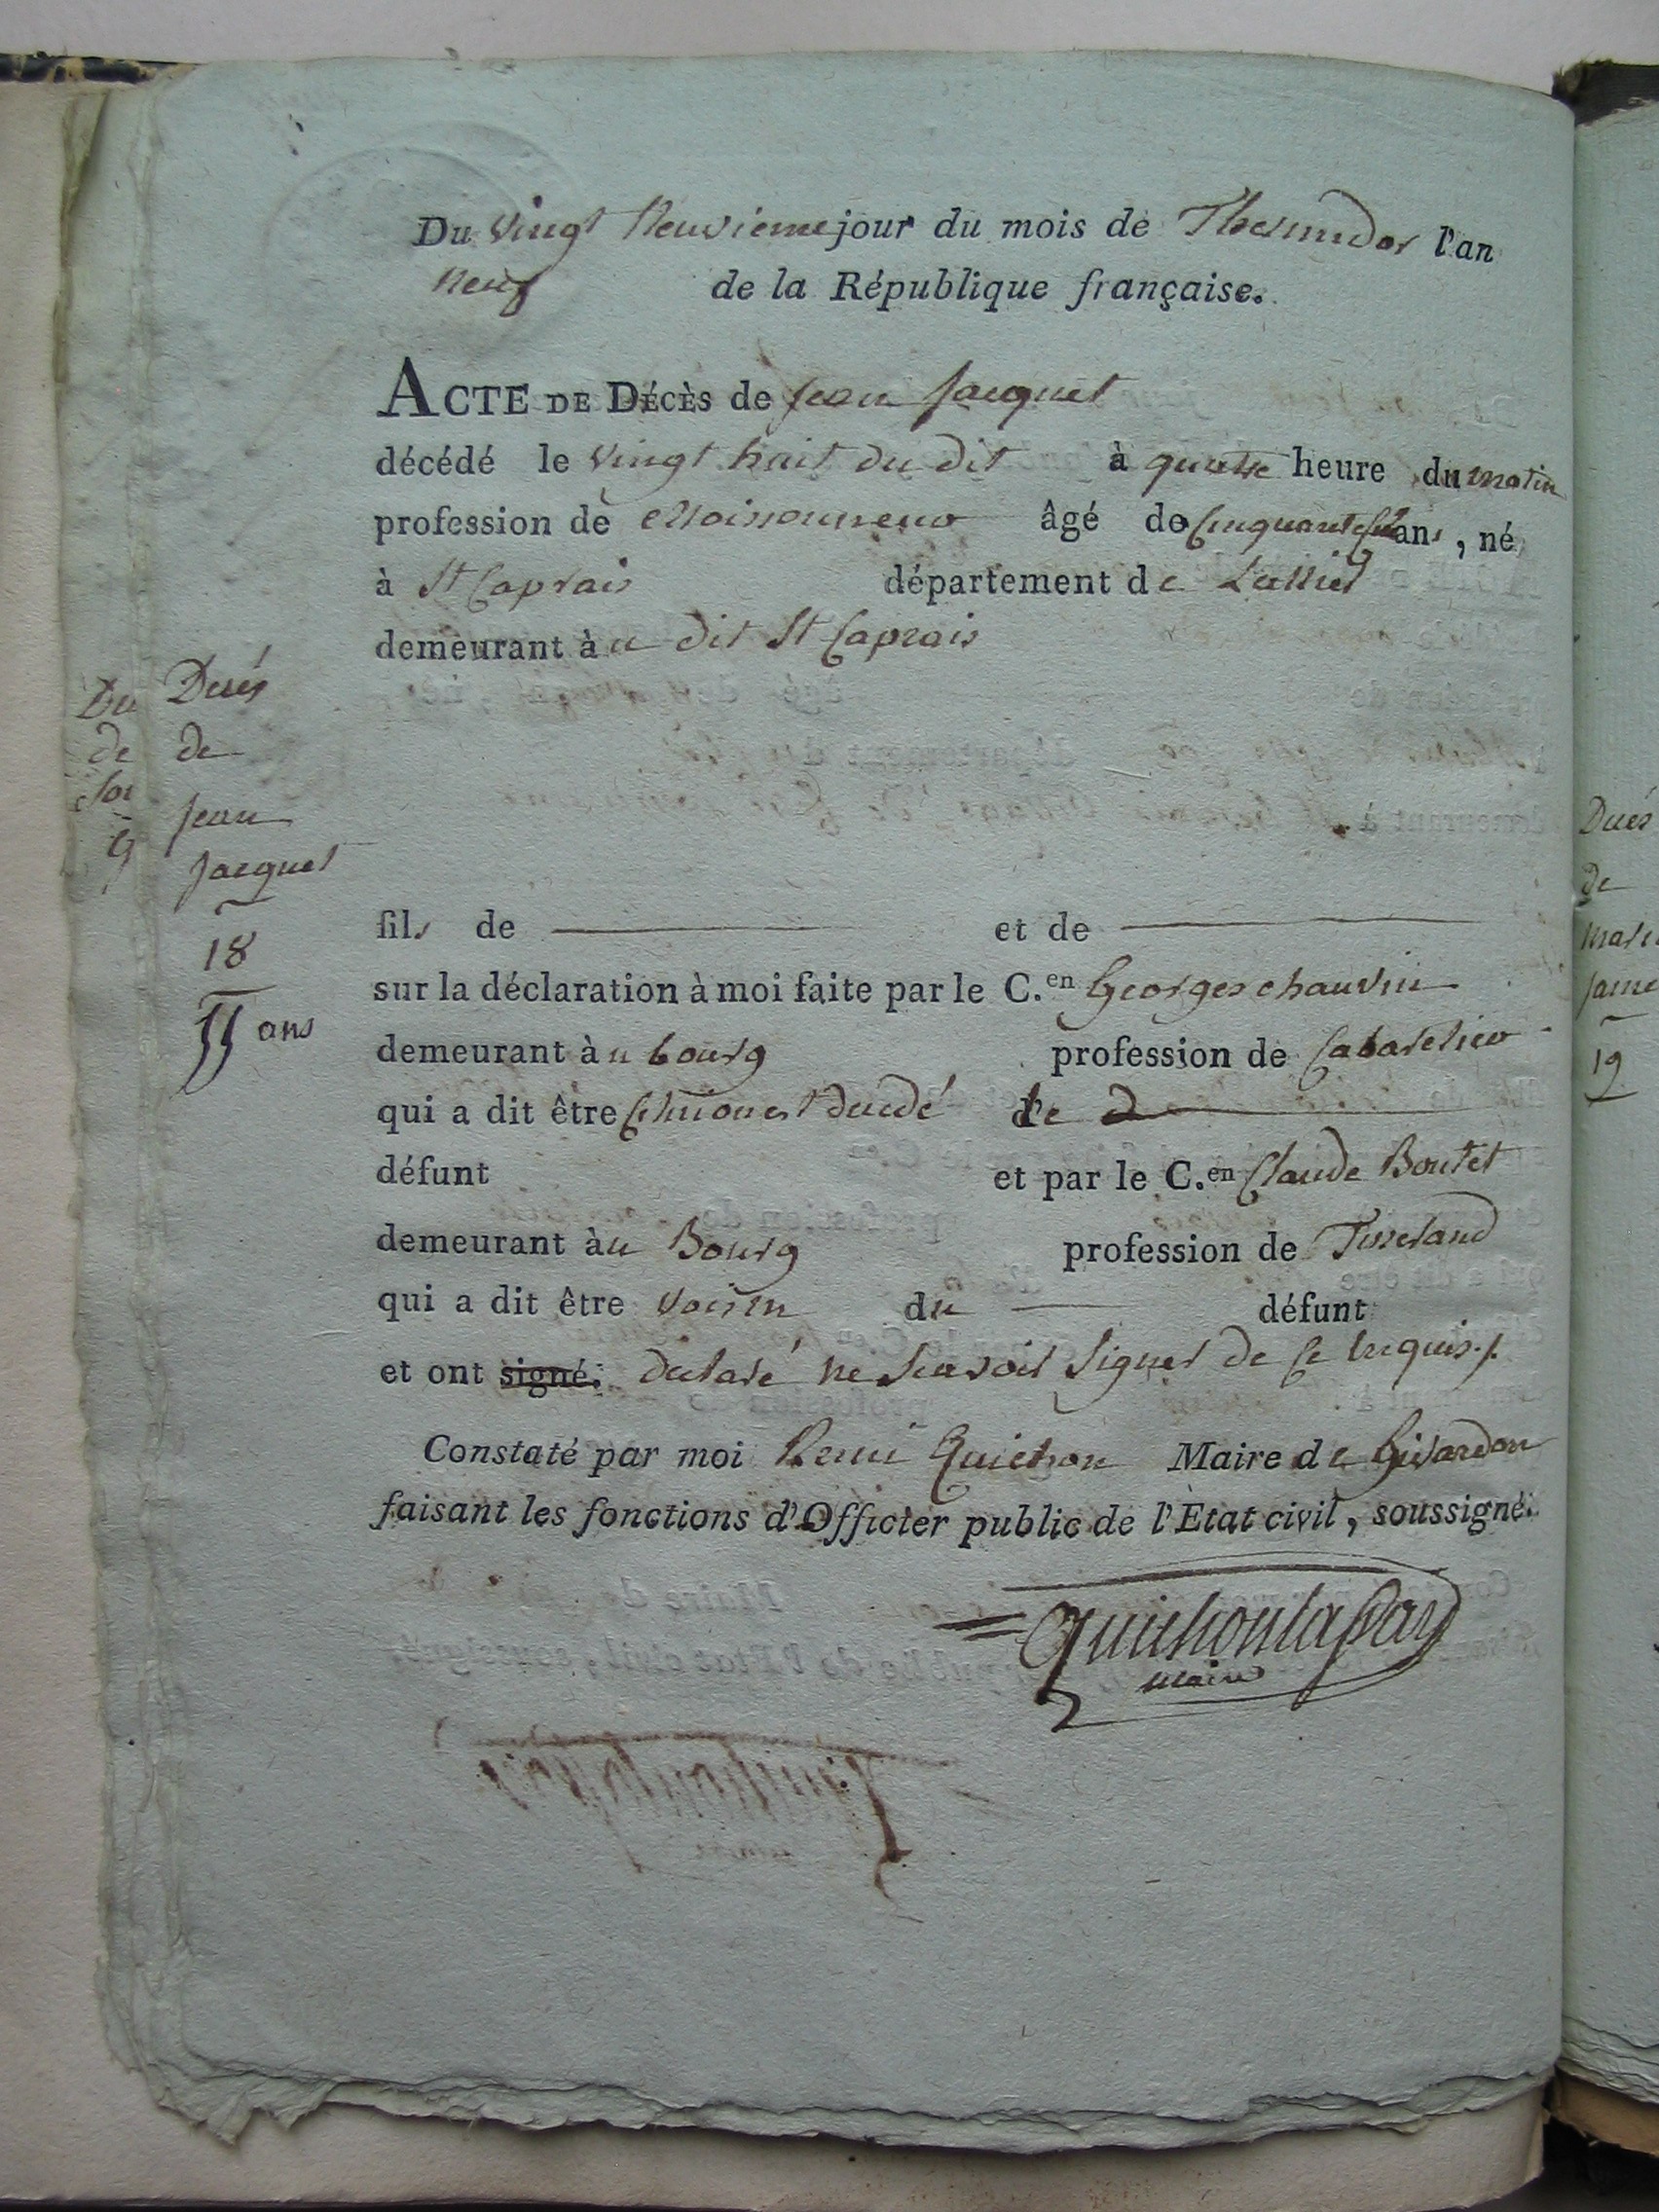 Du vingt neuvieme jour du mois de Thermidor l'an
neuf de la République française.
ACTE DE DÉCÈS de jean jacquet
décédé le vingt huit du dit à quatre heure du matin
profession de Moissonneur âgé de cinquante ans, né
à St Caprais département de Lallier
demeurant à u dit St Caprais
Decés
de
jean
jacquet
18
55 ans
Du
de
9
fils de et de
sur la déclaration à moi faite par le C.en Georges chauvin
demeurant à u bourg profession de Cabaretier
qui a dit être décedé de
défunt et par le C.en Claude Boutet
demeurant àu Bourg profession de Tisserand
qui a dit être voisin du défunt
et ont signé. declaré ne scavoir signer de ce enquis ./.
Constaté par moi Remi Quichon Maire de Givardon
faisant les fonctions d'Officier public de l'Etat civil, soussigné.
Quichon
maire
Decés
de
19